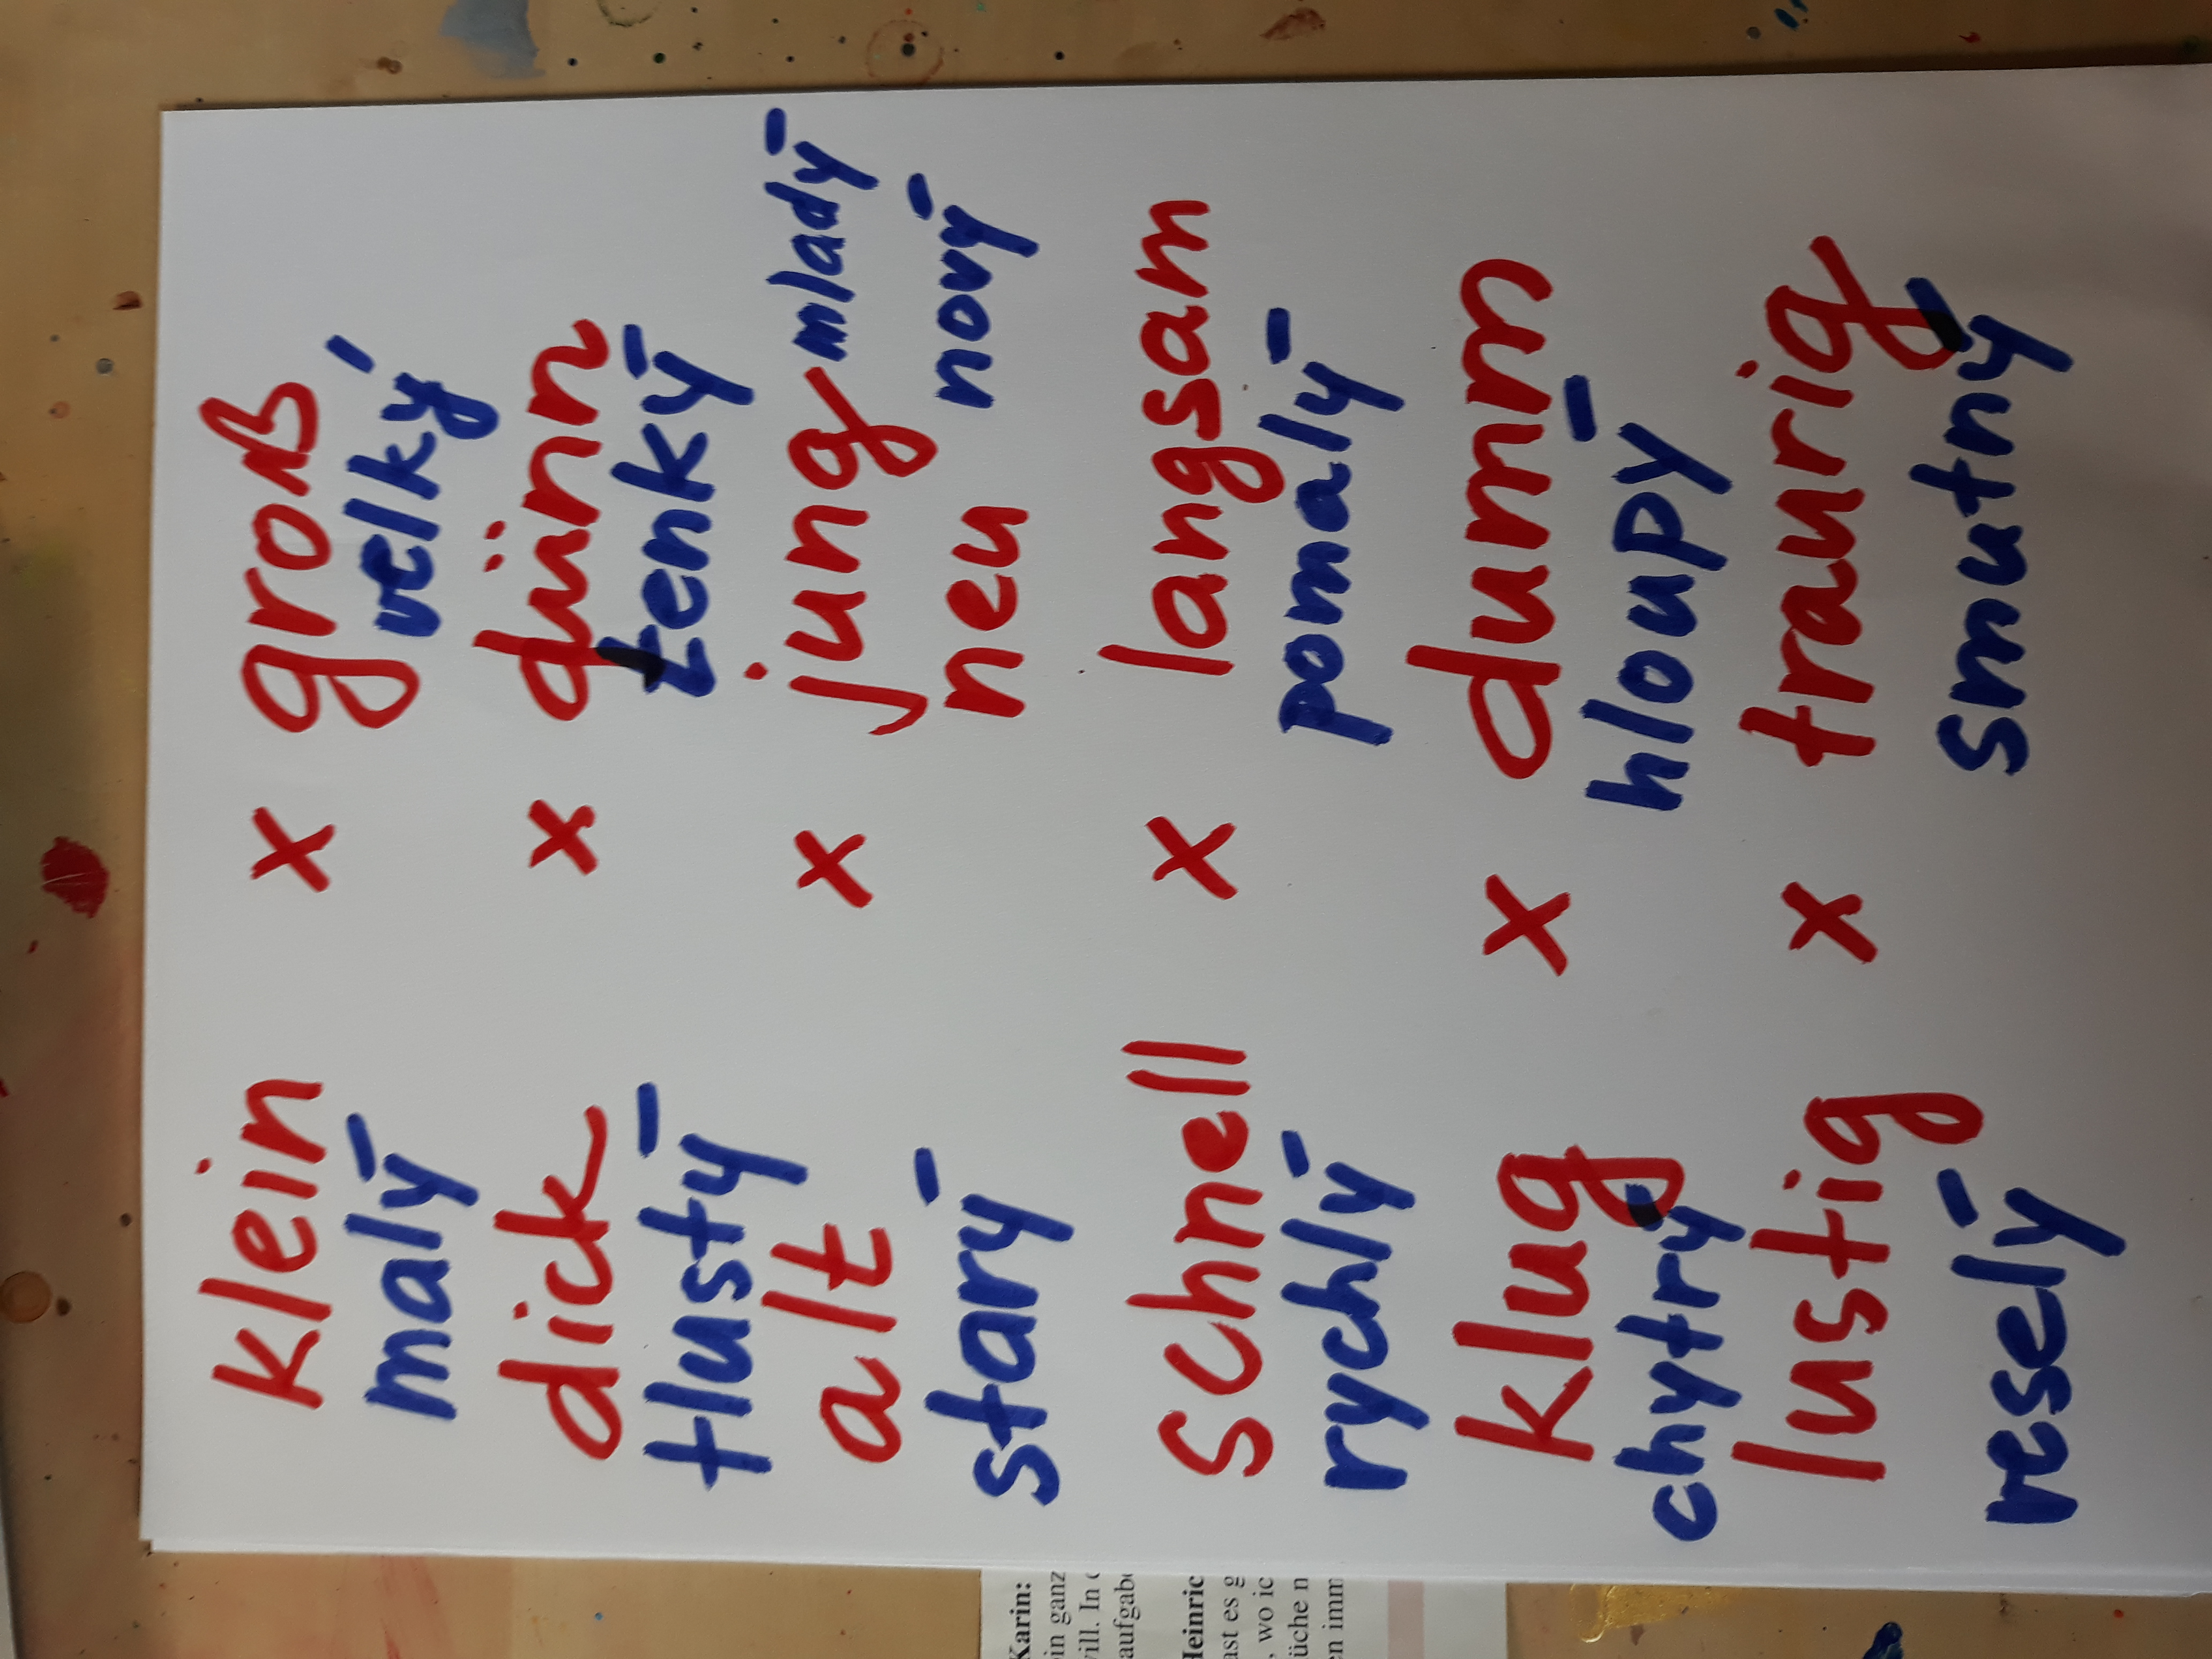 klein x groß
malý velký
dick x dünn
tlustý tenký
alt x jung mladý
starý neu nový
schnell x langsam
rychlý pomalý
klug x dumm
chytrý hloupý
lustig x traurig
veselý smutný
Karin:
in ganz
will. In
aufgabe
Heinric
ast es g
, wo ic
üche n
en imm